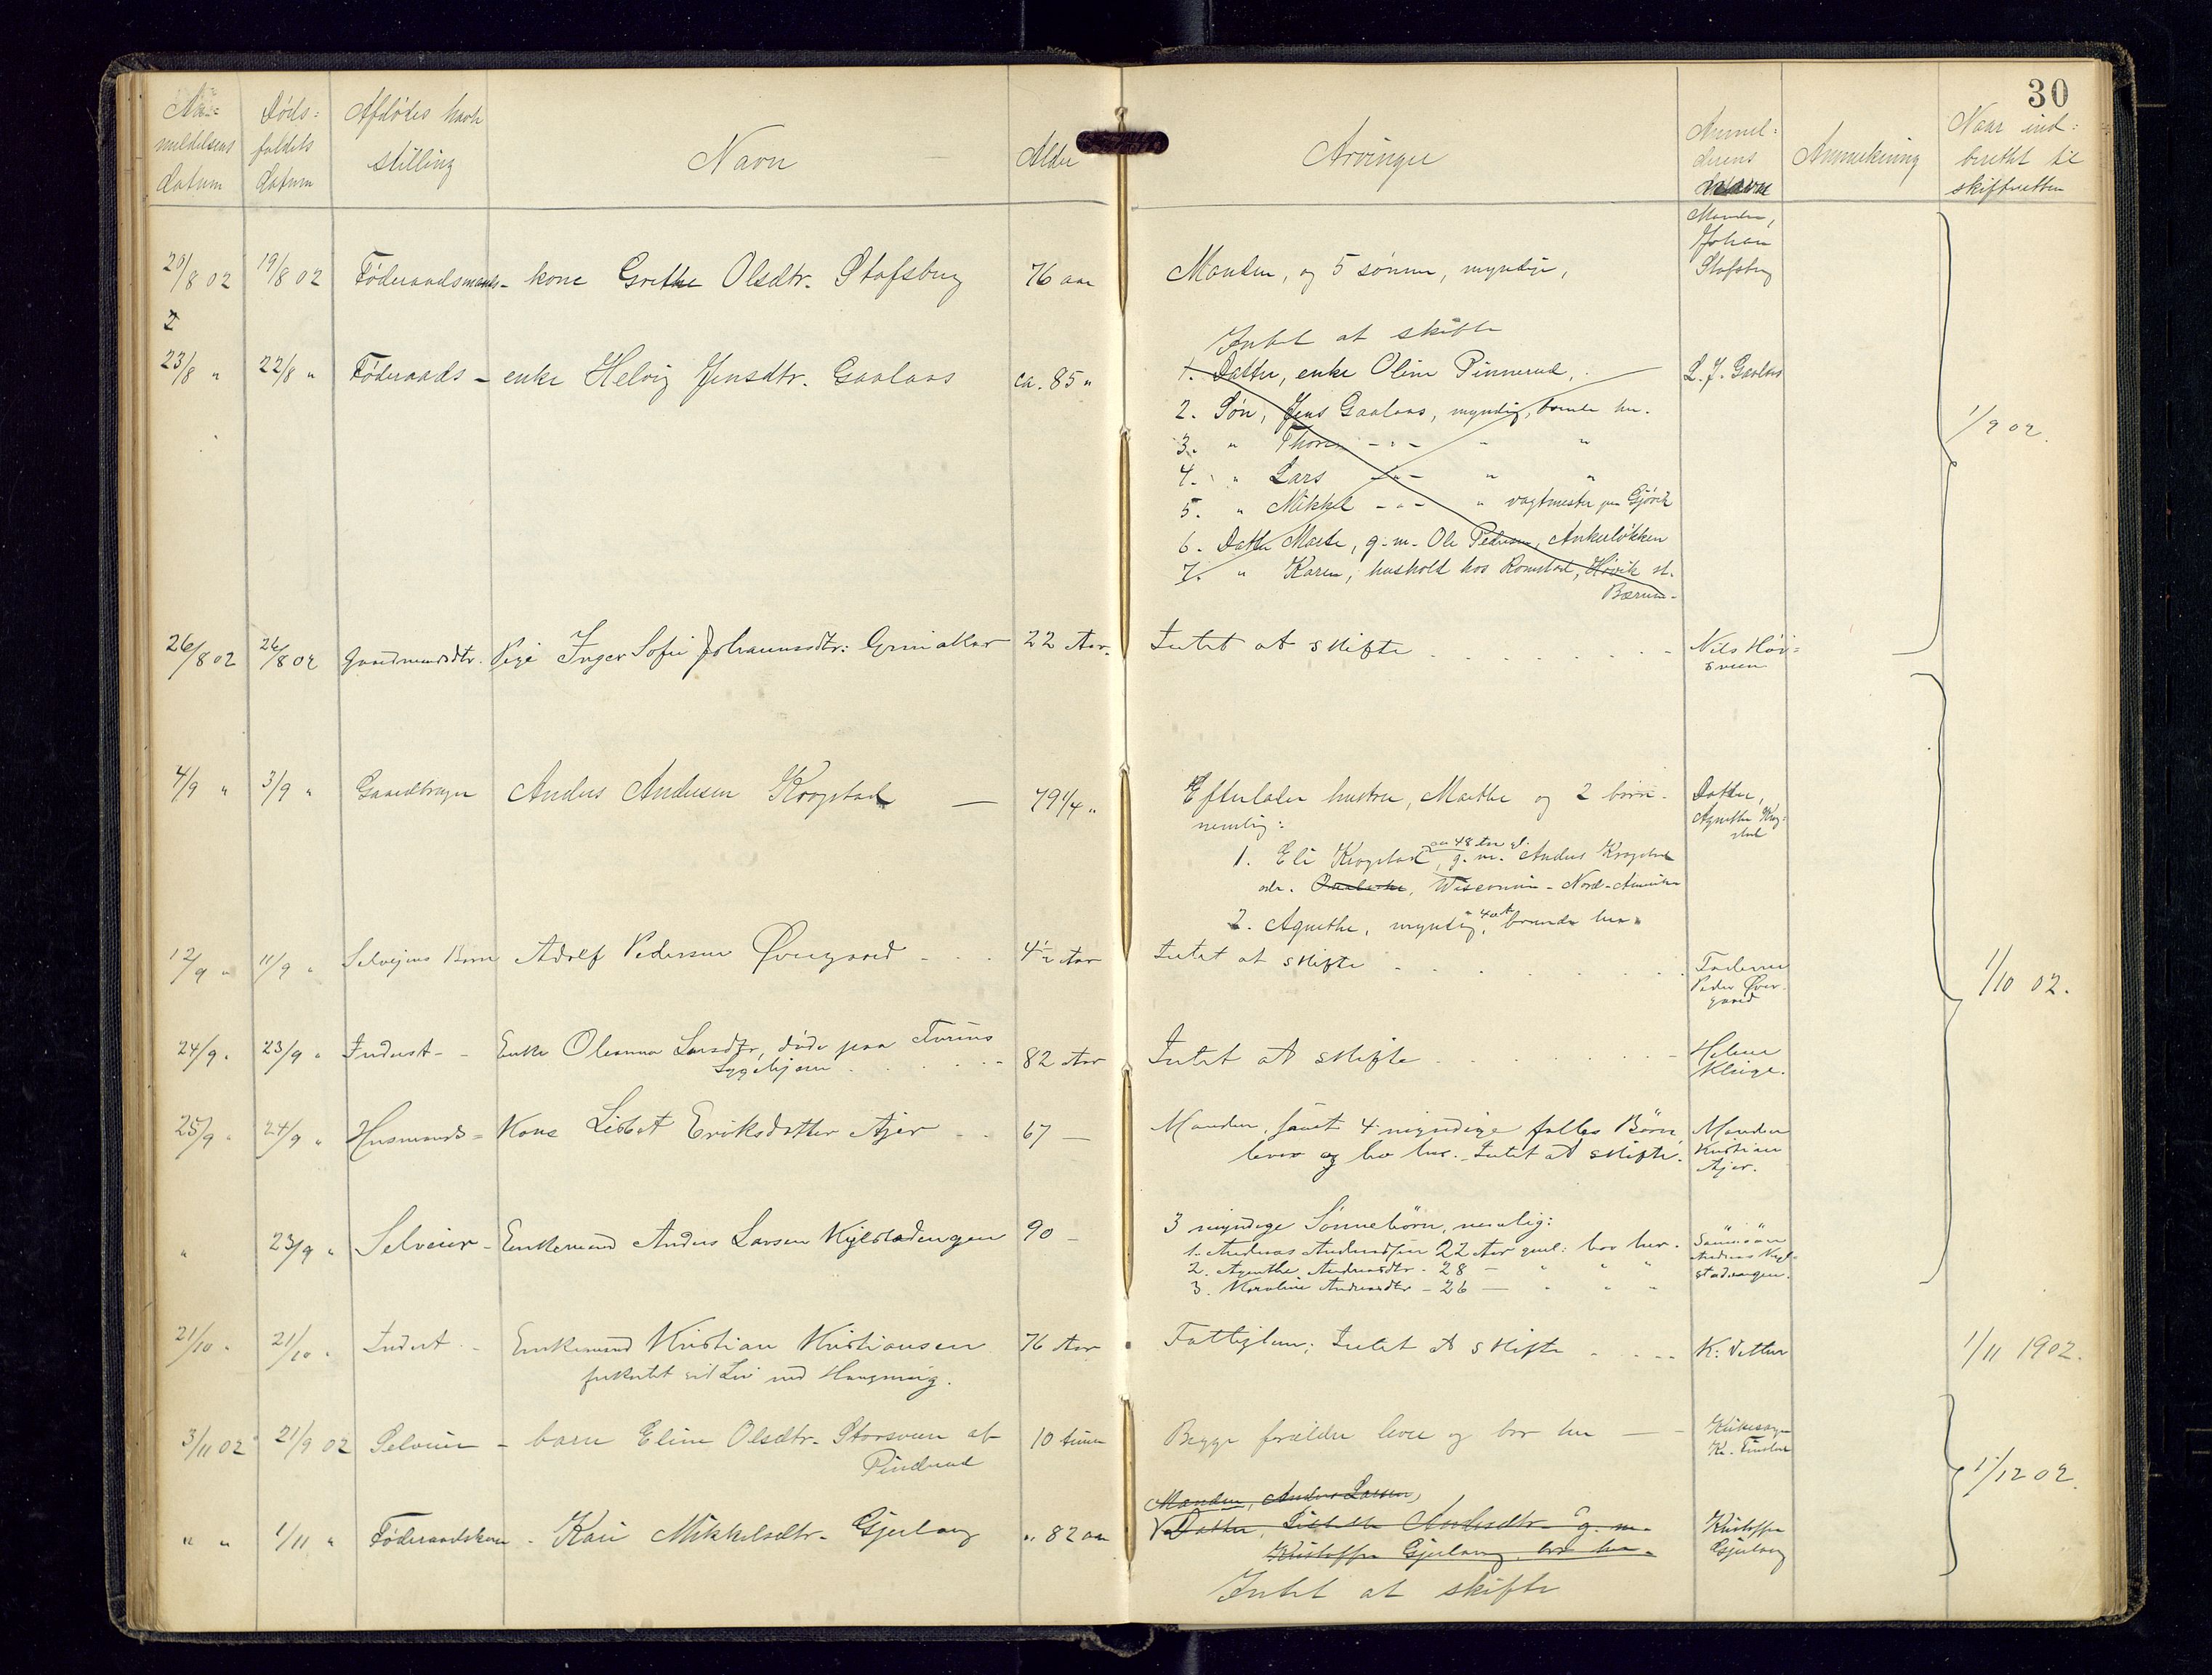 30
An=
meldelsens
datum
Døds=
faldets
datum
Afdødes navn
stilling
Navn
Alder
Arvinger
Anmel=
derens
navn
Anmerkning
Naar ind=
berettet til
skifteretten
20/8 02 19/8 02 Føderaadsmands- kone Grethe Olsdtr. Stafsberg 76 aar Manden, og 5 sønner, myndige,
Manden,
Johan
Stafsberg
Intet at skifte
23/8 " 22/8 " Føderaads - enke Helvig Jensdtr. Gaalaas ca. 85 "
1. Datter, enke Oline Pinnerud,
L. J. Gaalaas
2. Søn, Jens Gaalaas, myndig, boende her.
3. " Thor - " - " "
4. " Lars - " - " "
5. " Mikkel - " - " vagtmester paa Gjøvik
6. Datter Marte, g. m. Ole Pedersen, Ankerløkken
7. " Karen, hushold hos Romstad, Høvik st.
Bærum.
1/9 02.
26/8 02 26/8 02 Gaardmandsdtr. Pige Inger Sofie Johannesdtr: Grimakar 22 Aar. Intet at skifte
Nils Høi=
sveen
4/9 " 3/9 " Gaardbruger Anders Andersen Krogstad — 79 1/4 " Efterlader hustru, Marthe og 2 børn.
nemlig:
Datter,
Agnethe Krog=
stad
1. Eli Krogstad, ca 48 Aar gl. g. m. Anders Krogstad
adr. Wisconsin - Nord-Amerika
2. Agnethe, myndig, boende her.
12/9 " 11/9 " Selveiers Barn Adolf Pedersen Øvergaard 4 1/2 Aar Intet at skifte
Faderen
Peder Øver-
gaard
1/10 02.
24/9 " 23/9 " Inderst - Enke Oleanna Larsdtr, døde paa Furnes
Sygehjem 82 Aar Intet at skifte
Helene
Kleige.
25/9 " 24/9 " Husmands = Kone Lisbet Eriksdatter Ajer 67 — Manden, samt 4 myndige fælles Børn
lever og bor her. Intet at skifte.
Manden
Kristian
Ajer.
" 23/9 " Selveier - Enkemand Anders Larsen Kjelstadengen 90 - 3 myndige Sønnebørn, nemlig:
1. Andreas Andreassen 22 Aar gml: bor her.
2. Agnethe Andreasdtr - 28 — " " "
3. Karoline Andreasdtr - 26 — " " "
Sønnesøn
Andreas Kjel=
stadengen.
21/10 " 21/10 " Inderst - Enkemand Kristian Kristiansen 76 Aar Fattiglem; Intet at skifte
forkortet sit Liv ved Hængning.
K: Vetten
1/11 1902.
3/11 02 21/9 02 Selveier - barn Eline Olsdtr. Storsveen af
Pinderud 10 timer Begge forældre lever og bor her —
Kirkesanger
1/12 02.
Manden, Anders Larsen,
" " 1/11 " Føderaadskone - Kari Mikkelsdtr. Gjerlaug " 82 aar Datter, Lisbeth Andersdtr. g. m.
Kristoffer Gjerlaug, bor her.
Kristoffer
Gjerlaug
Intet at skifte